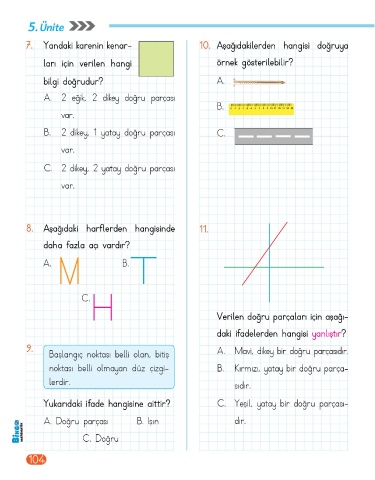 5. Ünite
7. Yandaki karenin kenar-
ları için verilen hangi
bilgi doğrudur?
A. 2 eğik, 2 dikey doğru parçası
var.
B. 2 dikey, 1 yatay doğru parçası
var.
C. 2 dikey, 2 yatay doğru parçası
var.
8. Aşağıdaki harflerden hangisinde
daha fazla açı vardır?
A. M
B. T
C. H
9. Başlangıç noktası belli olan, bitiş
noktası belli olmayan düz çizgi-
lerdir.
Yukarıdaki ifade hangisine aittir?
A. Doğru parçası
B. Işın
C. Doğru
10. Aşağıdakilerden hangisi doğruya
örnek gösterilebilir?
A.
B.
C.
11.
Verilen doğru parçaları için aşağı-
daki ifadelerden hangisi yanlıştır?
A. Mavi, dikey bir doğru parçasıdır.
B. Kırmızı, yatay bir doğru parça-
sıdır.
C. Yeşil, yatay bir doğru parçası-
dır.
104